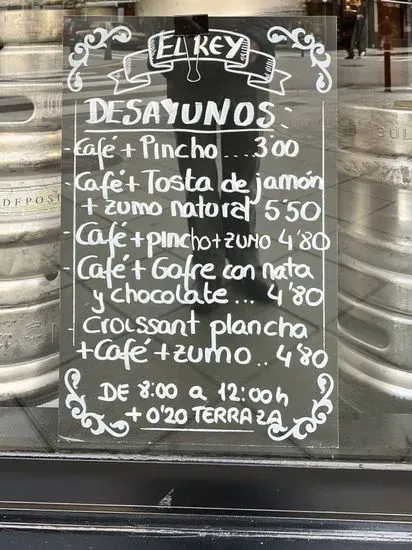 EL REY
DESAYUNOS:
- Café + Pincho .... 3'00
- Café + Tosta de jamón
+ zumo natural 5'50
- Café + pincho + zumo 4'80
- Café + Gofre con nata
y chocolate ... 4'80
- Croissant plancha
+ Café + zumo .. 4'80
DE 8:00 a 12:00h
+ 0'20 TERRAZA